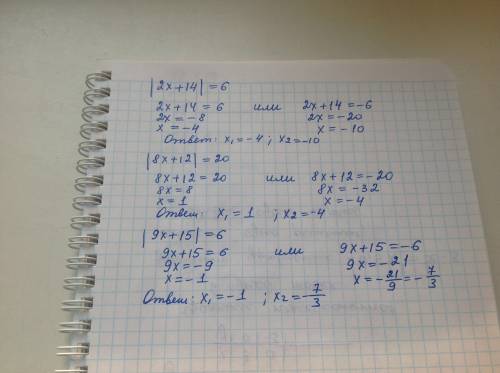 |2x+14|=6
2x+14=6 или 2x+14=-6
2x=-8 2x=-20
x=-4 x=-10
Ответ: x₁=-4; x₂=-10
|8x+12|=20
8x+12=20 или 8x+12=-20
8x=8 8x=-32
x=1 x=-4
Ответ: x₁=1 ; x₂=-4
|9x+15|=6
9x+15=6 или 9x+15=-6
9x=-9 9x=-21
x=-1 x=-21/9=-7/3
Ответ: x₁=-1 ; x₂=-7/3